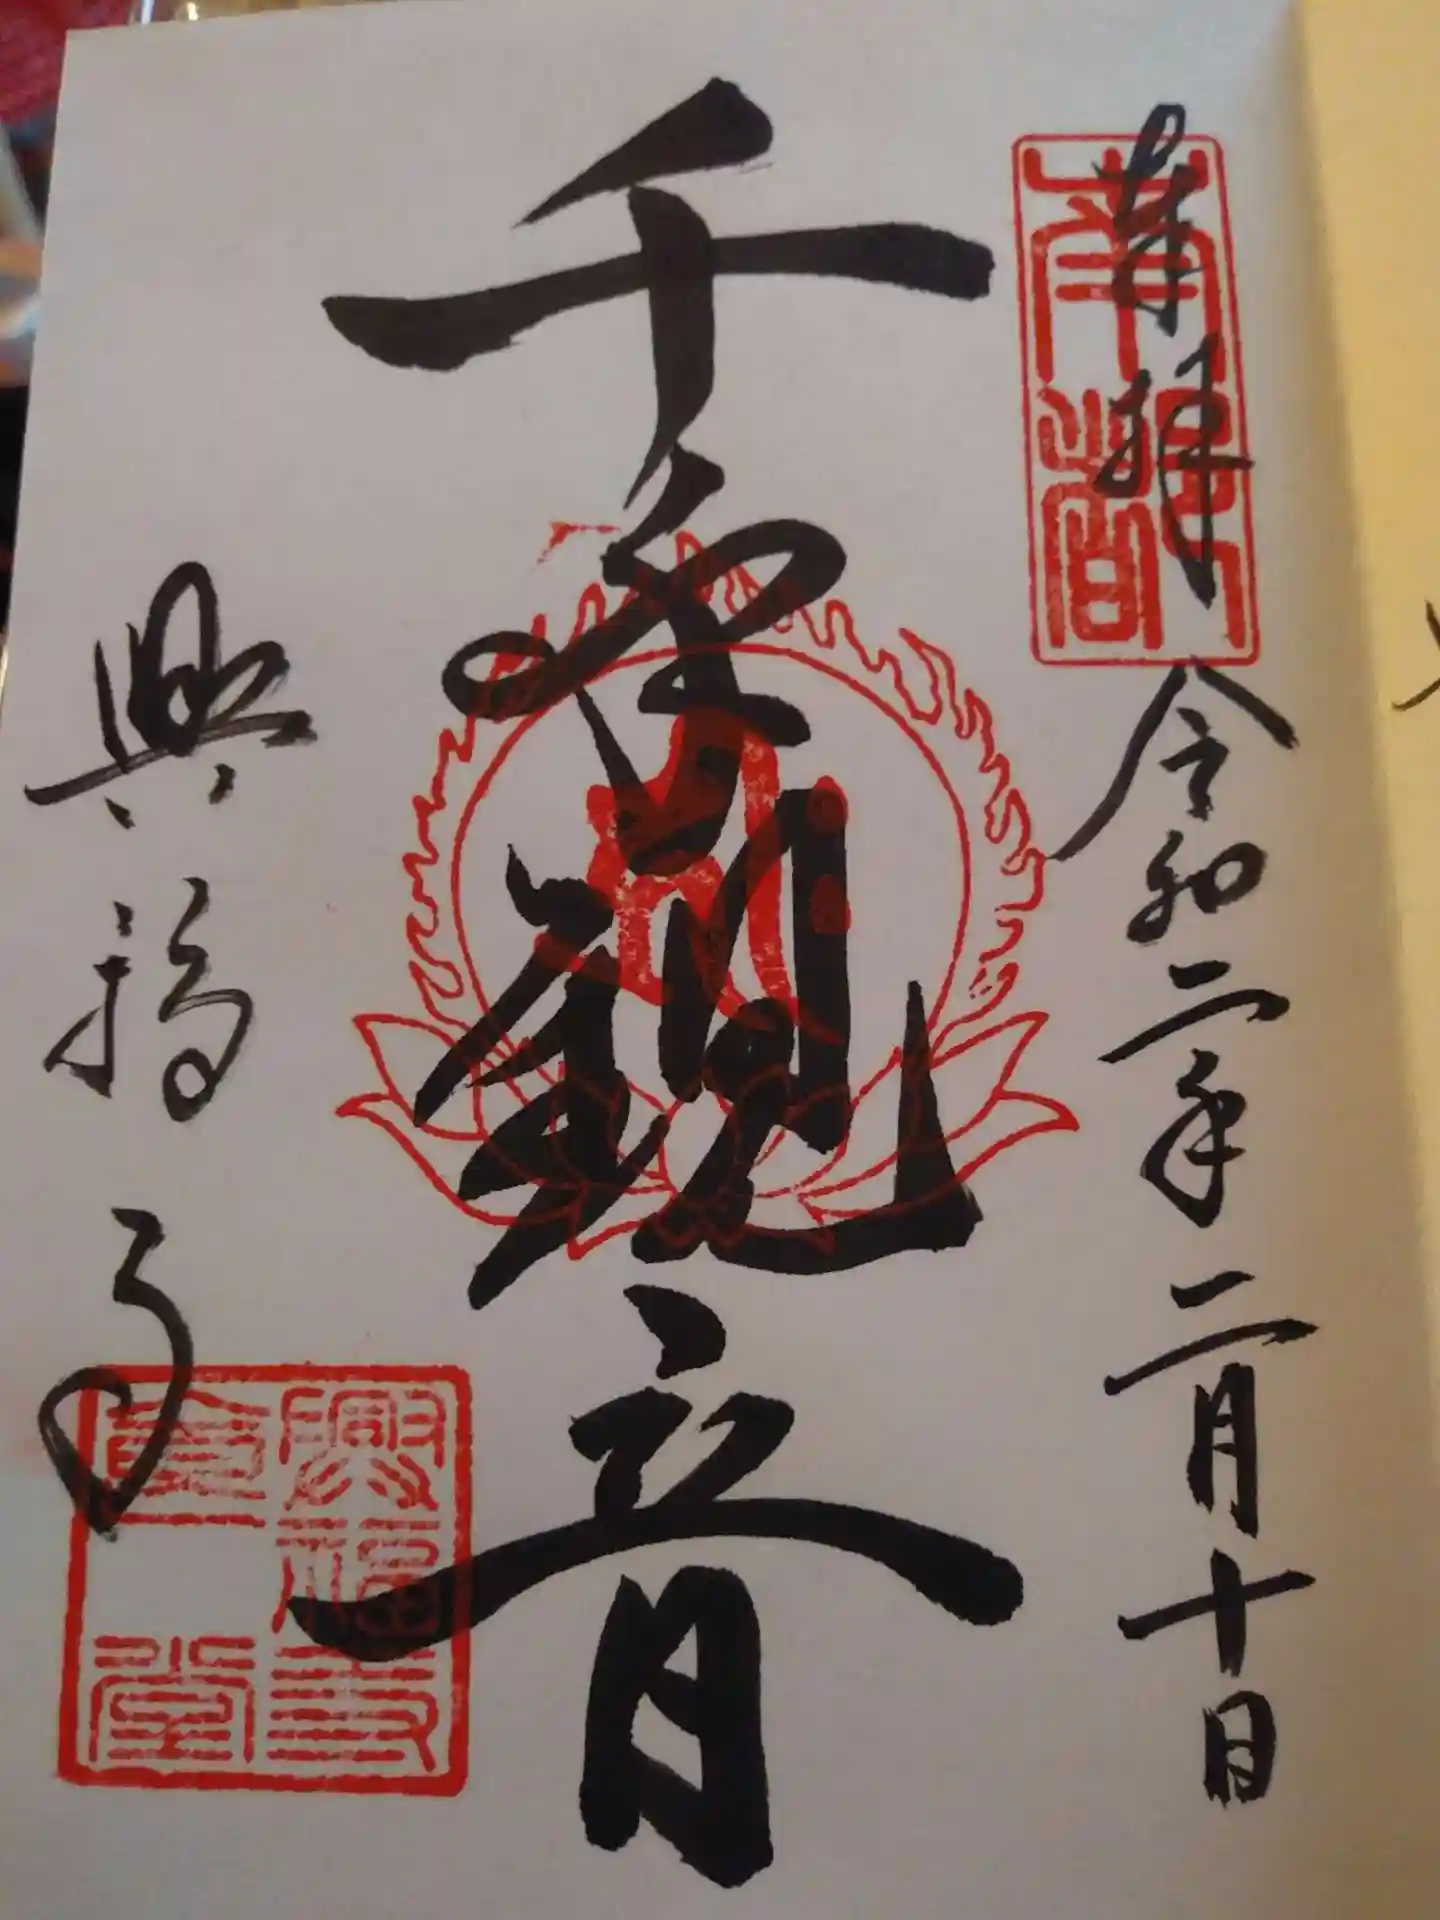 南都
奉拝 令和二年二月十日
千手観音
興福寺
興福寺
食堂